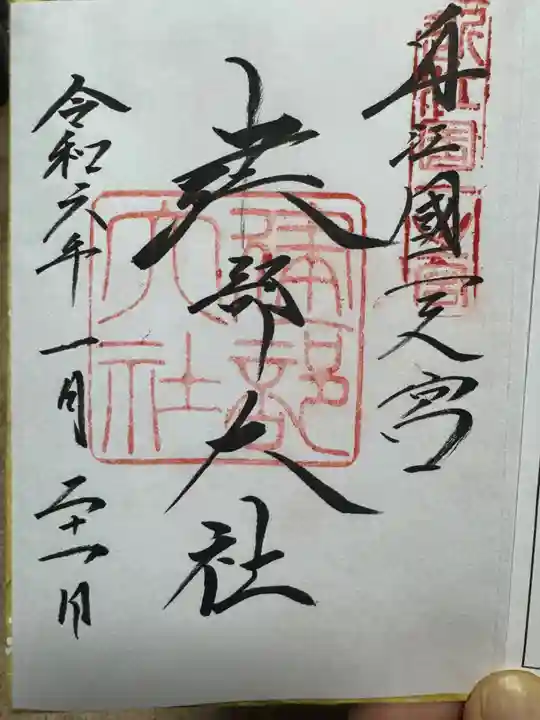 近江國一之宮
建部大社
令和六年一月二十一日
建部
大社